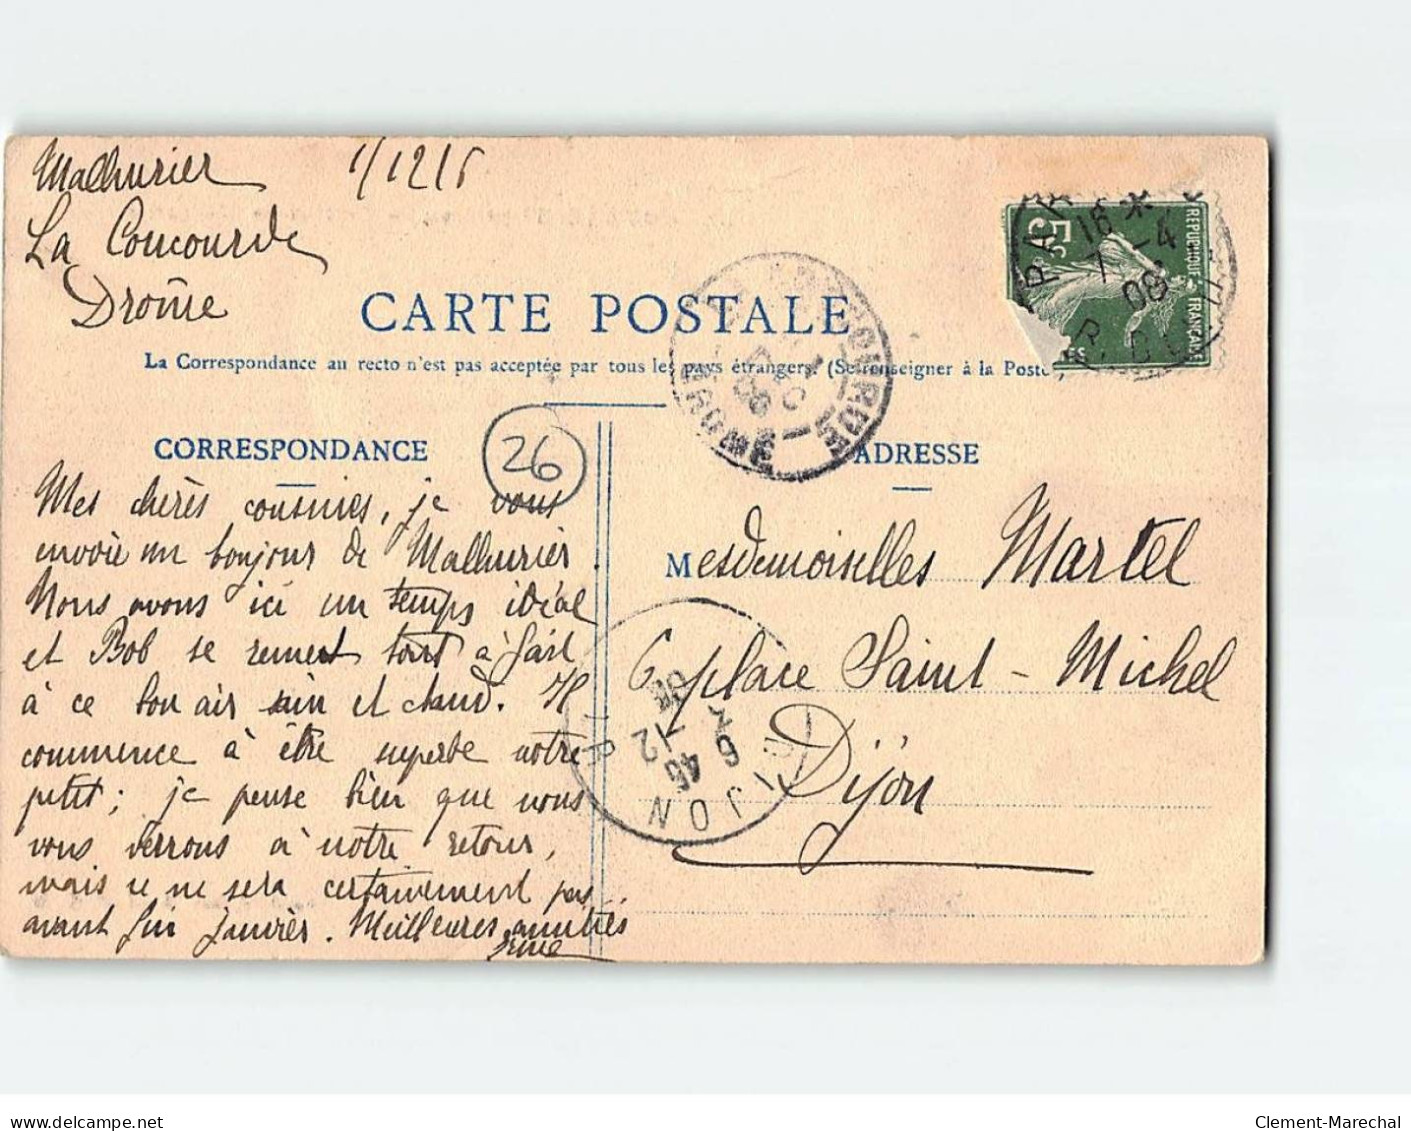 Malhurier 1/12/
La Concourde
Drôme
CARTE POSTALE
La Correspondance au recto n'est pas acceptée par tous les pays étrangers. (Se renseigner à la Poste)
CORRESPONDANCE
26
ADRESSE
Mes chères cousines, je vous
envoie un bonjour de Malhurier.
Nous avons ici un temps idéal
et Bob se remet tout à fait
à ce bon air sain et chaud. Il
commence à être superbe notre
petit; je pense bien que nous
vous verrons à notre retour,
mais ce ne sera certainement pas
avant fin Janvier. Meilleures amitiés
Mesdemoiselles Martel
6 place Saint-Michel
Dijon
5c
REPUBLIQUE FRANÇAISE
16 *
7 -4
08
DROME
DIJON
6 45
7-12
08
delcampe.net
Clement-Marechal